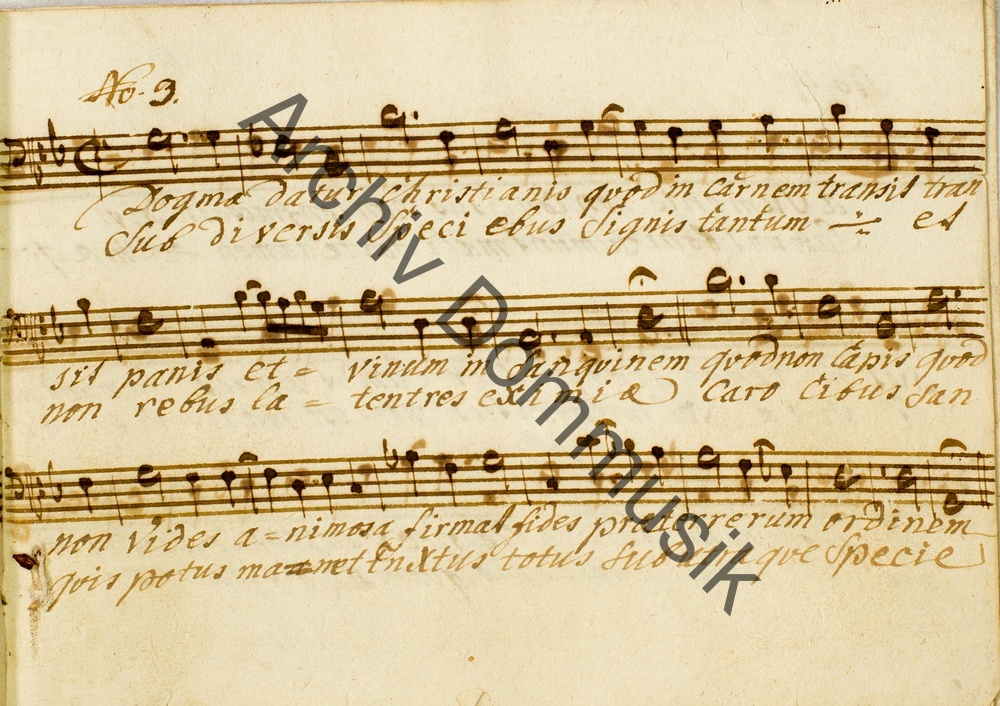 No. 3.
Dogma datur Christianis quod in carnem transit tran
Sub diversis Speci ebus Signis tantum et
sit panis et = vinum in Sanguinem quod non capis quod
non rebus la = tent res eximiæ Caro Cibus San
non vides a = nimosa firmat fides præter rerum ordinem
quis potus ma=net totus Sub utraque Specie
Archiv Dommusik